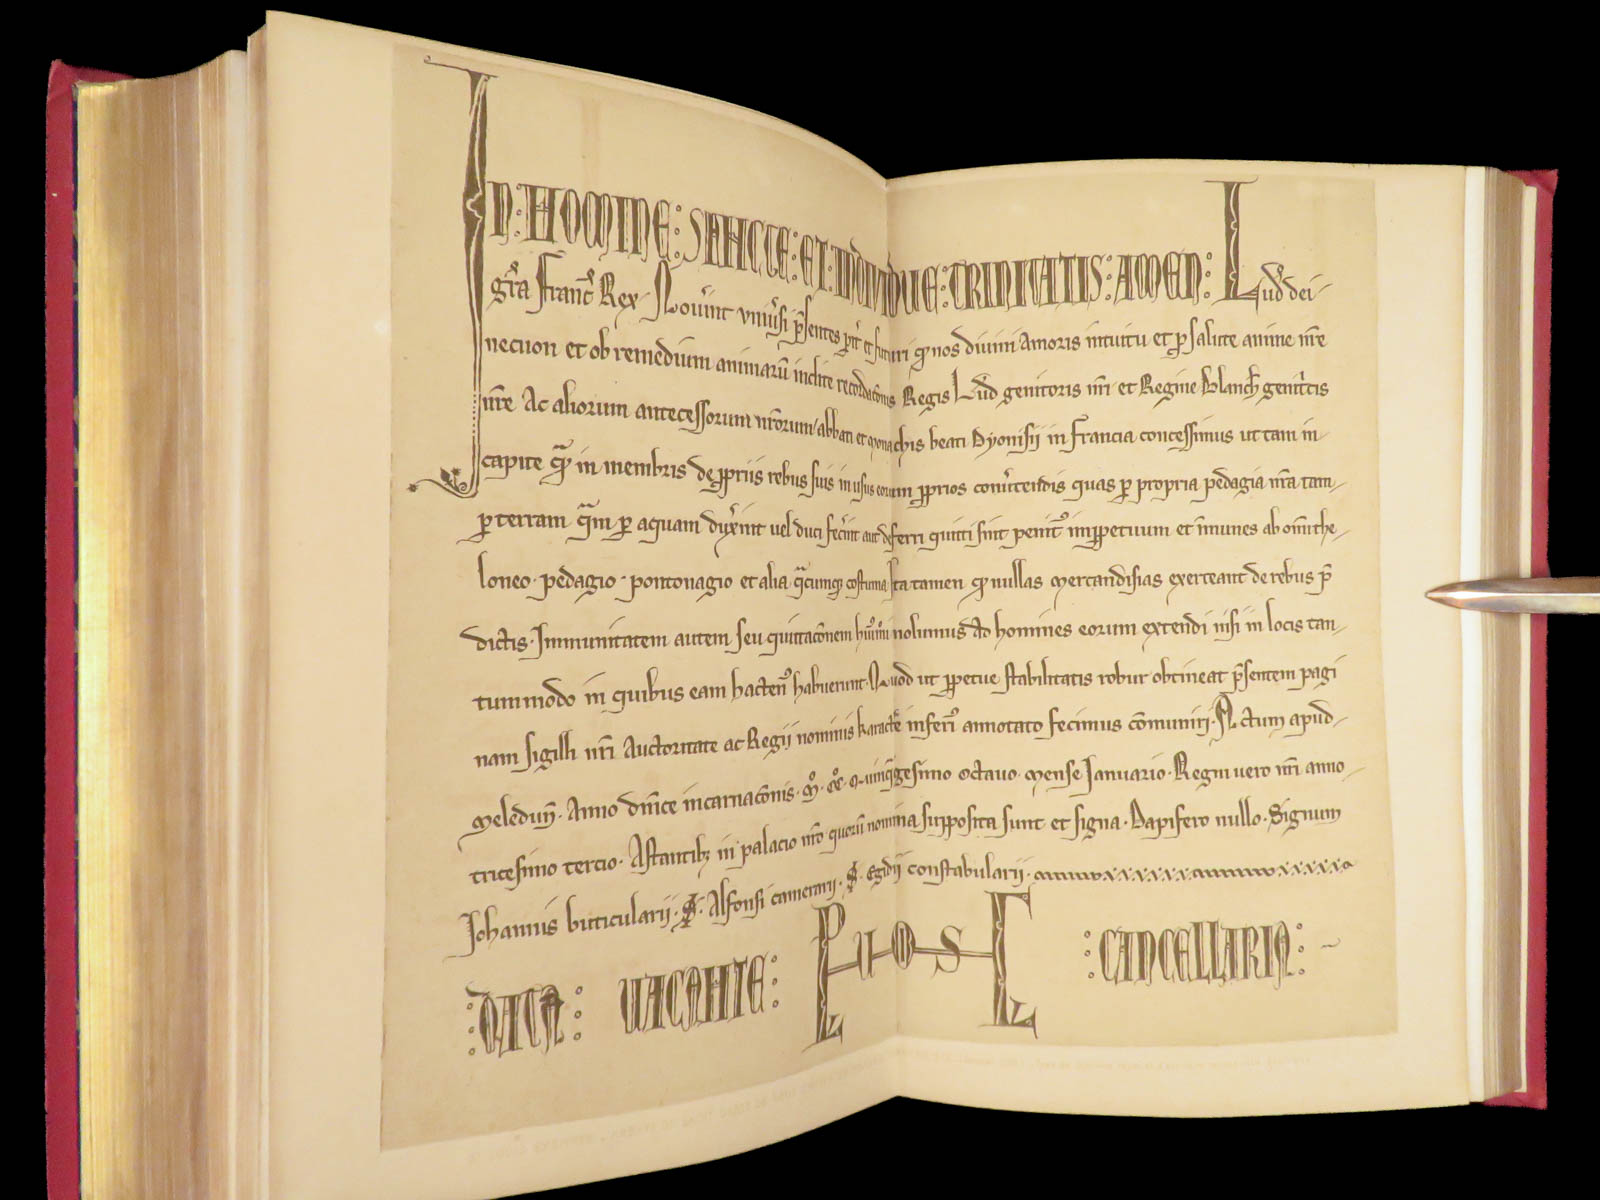 IN: NOMINE: SANCTE: ET: INDIVIDUE: TRINITATIS: AMEN: Lud' dei
gr̄a Franc' Rex. Nov'int univ'si p̄sentes pit' et futuri qd nos divini amoris intuitu et p salute anime nr̄e
necnon et ob remedium animarū inclite recordac̄onis Regis Lud' genitoris nr̄i et Regine Blanch' genit'cis
nr̄e Ac aliorum antecessorum nr̄orum abbati et monachis beati Dyonisii in Francia concessimus ut tam in
capite qam in membris de ppriis rebus suis in usus eorum pprios convertendis quas p propria pedagia nr̄a tam
p terram qam p aquam dux'int vel duci fec'int aut deferri quitti sint penit' imppetuum et īmunes ab om̄i the-
loneo. pedagio. pontonagio et alia qacumq; costuma Ita tamen qd nullas mercandisias exerceant de rebus p̄
dictis. Immunitatem autem seu quittac̄onem hui'modi nolumus ad homines eorum extendi nisi in locis tan-
tummodo in quibus eam hacten' habuerunt. Quod ut ppetue stabilitatis robur obtineat p̄sentem pagi
nam sigilli nr̄i auctoritate ac Regii nominis karact'e inferi' annotato fecimus cōmuniri. Actum apud
Meledun̄. Anno dn̄ice incarnac̄onis. Mº. CCº. Quinq'gesimo octavo. mense Ianuario. Regni vero nr̄i anno
tricesimo tercio. Astantib; in palacio nr̄o quorū nomina supposita sunt et signa. Dapifero nullo. Signum
Iohannis buticularii. S. Alfonsi camerarii. S. Egidii constabularii.
DATA: VACANTE: CANCELLARIA: